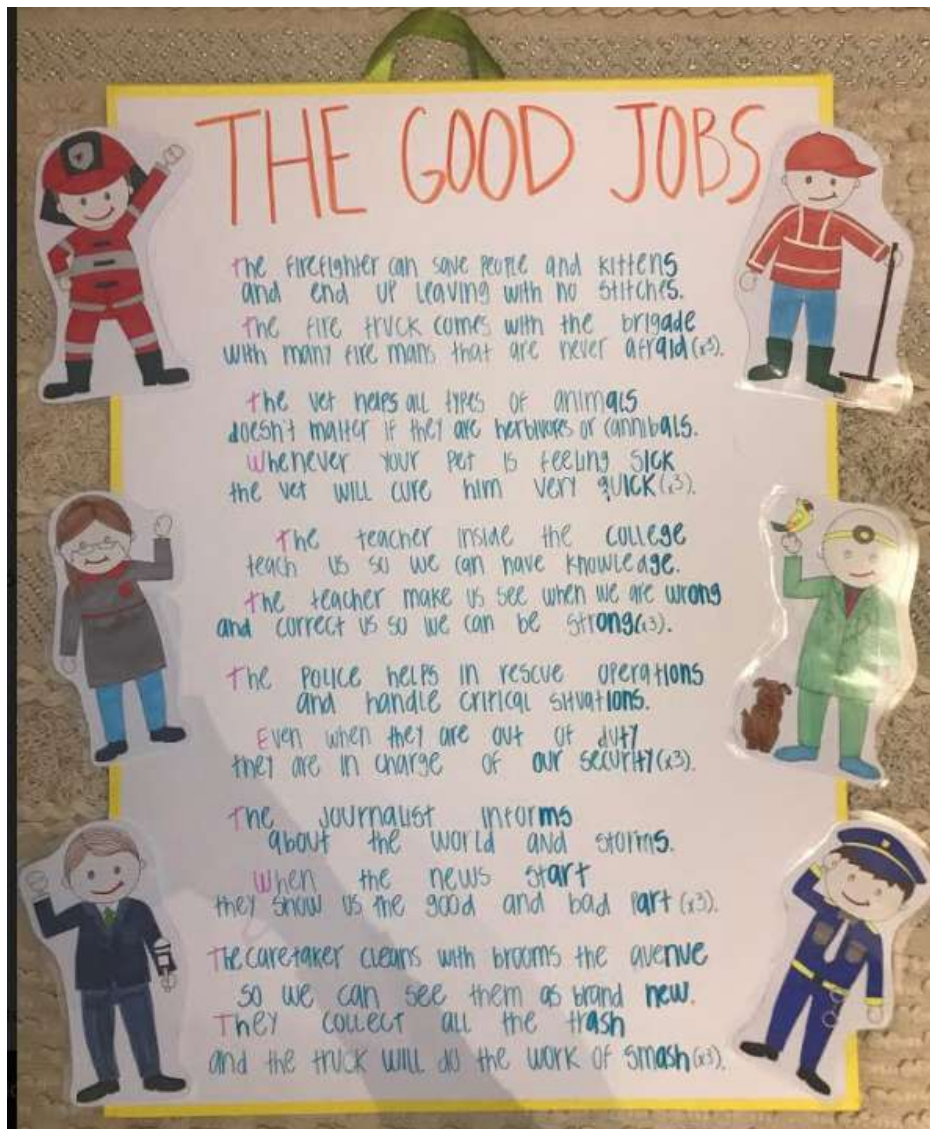 THE GOOD JOBS
The firefighter can save people and kittens
and end up leaving with no stitches.
The fire truck comes with the brigade
with many fire mans that are never afraid (x3).
The vet helps all types of animals
doesn't matter if they are herbivores or cannibals.
Whenever your pet is feeling sick
the vet will cure him very quick (x3).
The teacher inside the college
teach us so we can have knowledge.
The teacher make us see when we are wrong
and correct us so we can be strong (x3).
The police helps in rescue operations
and handle critical situations.
Even when they are out of duty
they are in charge of our security (x3).
The journalist informs
about the world and storms.
When the news start
they show us the good and bad part (x3).
The caretaker cleans with brooms the avenue
so we can see them as brand new.
They collect all the trash
and the truck will do the work of smash (x3).